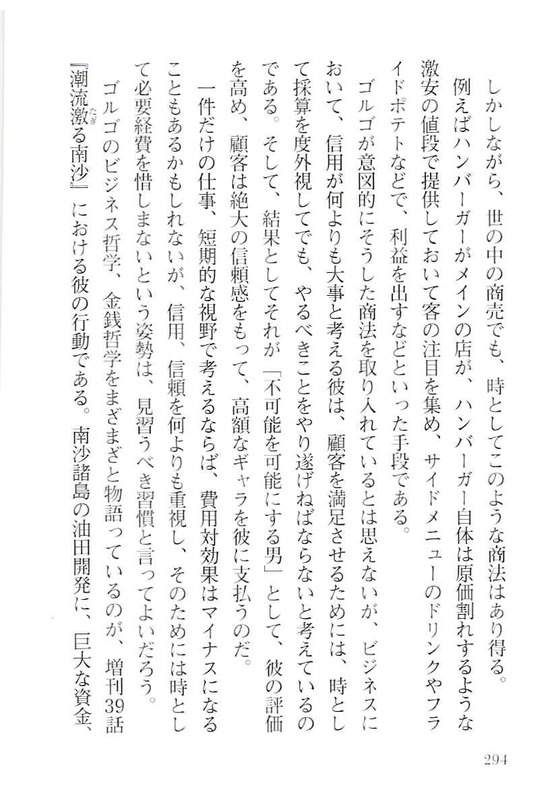 しかしながら、世の中の商売でも、時としてこのような商法はあり得る。
例えばハンバーガーがメインの店が、ハンバーガー自体は原価割れするような
激安の値段で提供しておいて客の注目を集め、サイドメニューのドリンクやフラ
イドポテトなどで、利益を出すなどといった手段である。
ゴルゴが意図的にそうした商法を取り入れているとは思えないが、ビジネスに
おいて、信用が何よりも大事と考える彼は、顧客を満足させるためには、時とし
て採算を度外視してでも、やるべきことをやり遂げねばならないと考えているの
である。そして、結果としてそれが「不可能を可能にする男」として、彼の評価
を高め、顧客は絶大の信頼感をもって、高額なギャラを彼に支払うのだ。
一件だけの仕事、短期的な視野で考えるならば、費用対効果はマイナスになる
こともあるかもしれないが、信用、信頼を何よりも重視し、そのためには時とし
て必要経費を惜しまないという姿勢は、見習うべき習慣と言ってよいだろう。
ゴルゴのビジネス哲学、金銭哲学をまざまざと物語っているのが、増刊39話
『潮流激る南沙』における彼の行動である。南沙諸島の油田開発に、巨大な資金、
たぎ
294